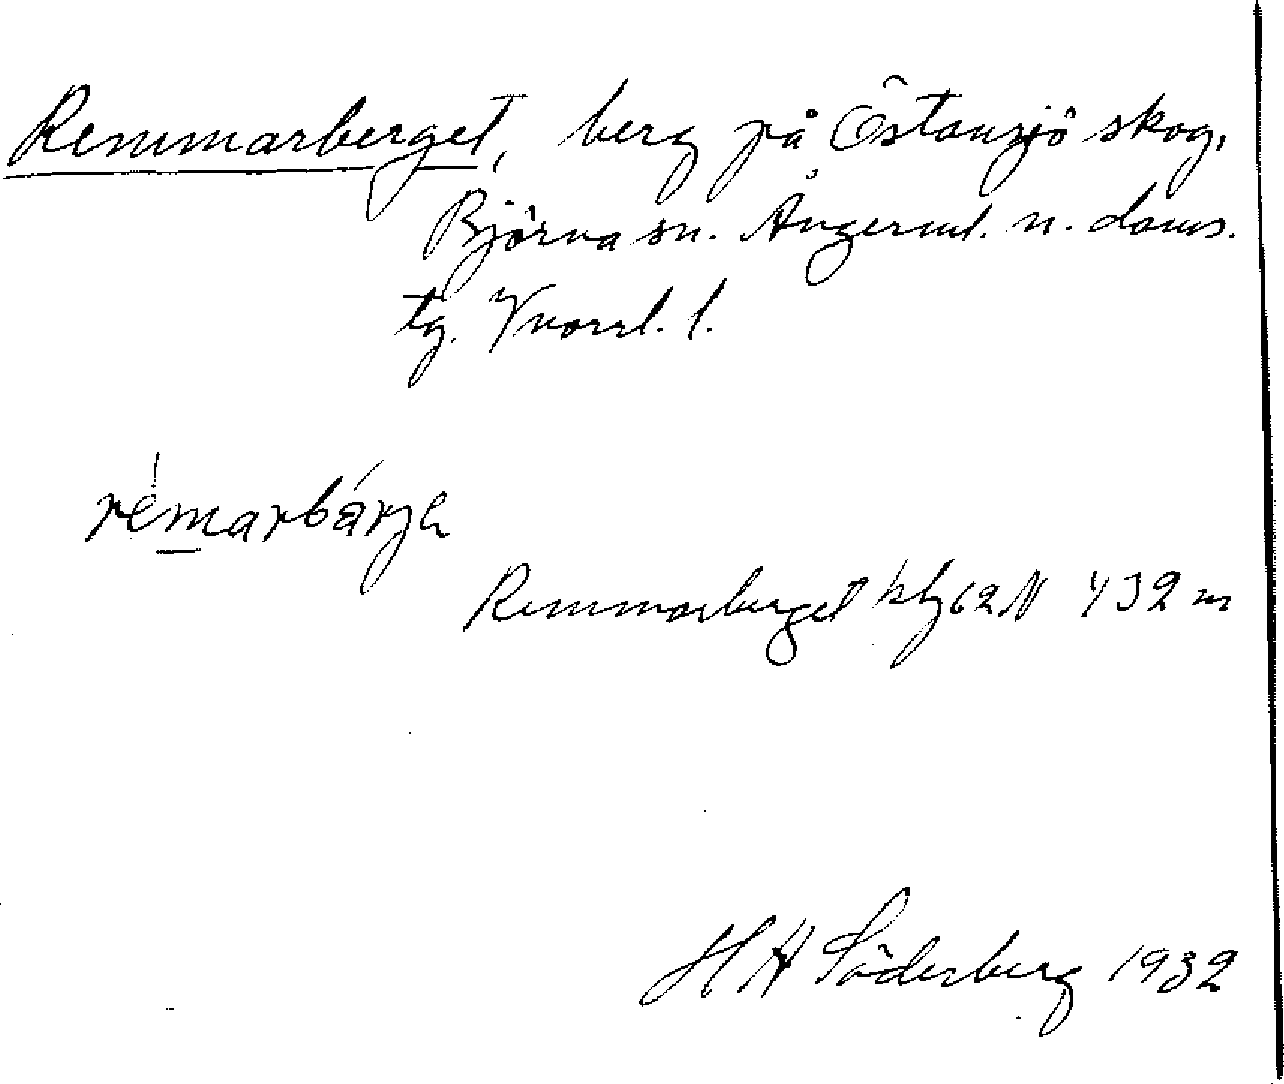 Remmarberget, berg på Östansjö skog,
Björna sn. Ångerml. n. doms.
tg. Vnorrl. l.
rémarbárja
Remmarberget kbl 62 N 432 m
H H Söderberg 1932